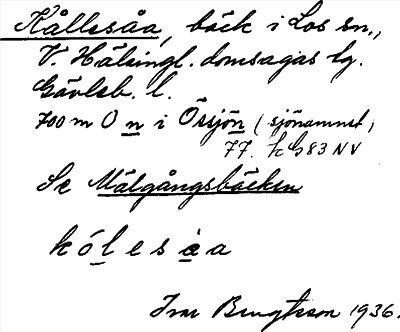 Kållesåa, bäck i Los sn.,
V. Hälsingl. domsagas tg.
Gävleb. l.
700 m O n i Örsjön (sjönamnet)
77. k G 83 NV
Se Målgångsbäcken
kólesàa
Ivar Bengtsson 1936.